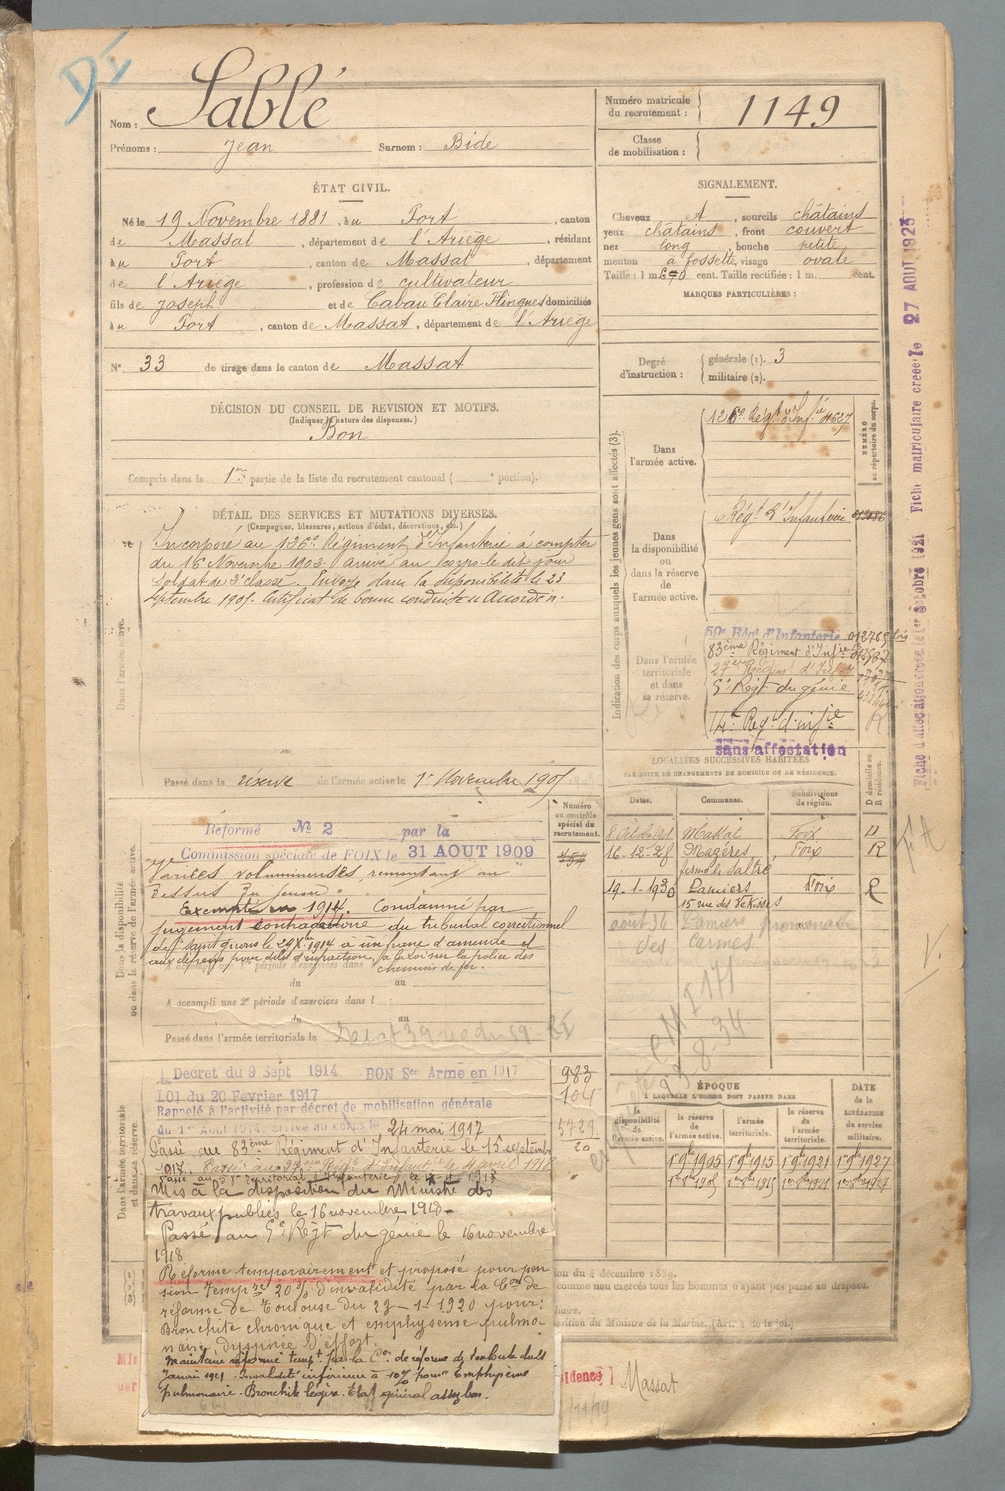 Nom : Sablé
Prénoms : Jean Surnom : Bide
ÉTAT CIVIL.
Né le 19 Novembre 1881, à u Port, canton
de Massat, département de l'Ariège, résidant
à u Port, canton de Massat, département
de l'Ariège, profession de cultivateur
fils de Joseph et de Cabau Claire domiciliés
à u Port, canton de Massat, département de l'Ariège
N° 33 de tirage dans le canton de Massat
DÉCISION DU CONSEIL DE REVISION ET MOTIFS.
(Indiquer la nature des dispenses.)
Bon
Compris dans la 1re partie de la liste du recrutement cantonal ( portion).
DÉTAIL DES SERVICES ET MUTATIONS DIVERSES.
(Campagnes, blessures, actions d'éclat, décorations, etc.)
Incorporé au 126e Régiment d'Infanterie à compter
du 16 Novembre 1902. Arrivé au corps le dit jour
Soldat de 2e classe. Envoyé dans la disponibilité le 23
Septembre 1905. Certificat de bonne conduite Accordé.
Dans l'armée active.
Passé dans la réserve de l'armée active le 1er Novembre 1905
Numéro
au contrôle
spécial du
recrutement.
Réformé No 2 par la
Commission spéciale de FOIX le 31 AOUT 1909
Varices volumineuses, remontant au
dessus du genou
Exempté en 1914. Condamné par
jugement contradictoire du tribunal correctionnel
de St Girons le 1914 à un franc d'amende et
aux dépens pour délit d'infraction à la loi sur la police des
chemins de fer.
du au
A accompli une 2e période d'exercices dans l
du au
Passé dans l'armée territoriale le
Dans la disponibilité
ou dans la réserve de l'armée active.
Decret du 9 Sept 1914 BON Sce Armé en 1917
LOI du 20 Fevrier 1917
Rappelé à l'activité par décret de mobilisation générale
du 1er Août 1914. arrivé au corps le 24 mai 1917
Passé au 83ème Régiment d'Infanterie le 15 septembre
1917. Passé au 27ème Régt d'Infant. le 4 avril 1918
Mis à la disposition du Ministre des
travaux publics le 16 novembre 1918.
Passé au 5e Régt du génie le 16 novembre
1918
Réformé temporairement et proposé pour pen
sion tempre 20% d'invalidité par la Con de
réforme de Toulouse du 23-1-1920 pour:
Bronchite chronique et emphysème pulmo
naire dyspnée d'effort.
Maintenu réformé tempt par la Con de réforme de Toulouse du
Janvier 1921. Invalidité inférieure à 10% pour Emphysème
pulmonaire. Bronchite légère. Etat général assez bon.
Dans l'armée territoriale
et dans sa réserve.
983
104
5729
20
Numéro matricule
du recrutement : 1149
Classe
de mobilisation :
SIGNALEMENT.
Cheveux et, sourcils châtains
yeux châtains, front couvert
nez long, bouche petite
menton à fossette, visage ovale
Taille : 1 m. cent. Taille rectifiée : 1 m. cent.
MARQUES PARTICULIÈRES :
Degré
d'instruction :
générale (1). 3
militaire (2).
Indication des corps auxquels les jeunes gens sont affectés (3).
NUMÉRO
au répertoire du corps.
Dans
l'armée active.
126e Régt d'Infie
Dans
la disponibilité
ou
dans la réserve
de
l'armée active.
Régt d'Infanterie
Dans l'armée
territoriale
et dans
sa réserve.
59e Régt d'Infanterie
83ème Régiment d'Infie
27ème Régiment d'Infie
5e Régt du génie
14e Regt d'infie
sans affectation
LOCALITÉS SUCCESSIVES HABITÉES
PAR SUITE DE CHANGEMENTS DE DOMICILE OU DE RÉSIDENCE.
Dates. Communes. Subdivisions
de région. D domicile ou
R résidence.
Massat Foix D
16-12-28 Mazères Foix R
19-1-1930 Pamiers Foix R
15 rue des
août 36 Pamiers promenade
des Carmes
ÉPOQUE
À LAQUELLE L'HOMME DOIT PASSER DANS
DATE
DE LA
LIBÉRATION
du
service
militaire.
la
disponibilité
de
l'armée active.
la réserve
de
l'armée active.
l'armée
territoriale.
la réserve
de
l'armée
territoriale.
1er 9bre 1905 1er 9bre 1915 1er 8bre 1921 1er 9bre 1927
tion du 4 décembre 1889.
comme non exercés tous les hommes n'ayant pas passé au drapeau.
position du Ministre de la Marine. (Art. 4 de la loi.)
sidence] Massat
Fiche d'affectation créée le 1er Octobre 1921 Fiche matriculaire créée le 27 AOUT 1923